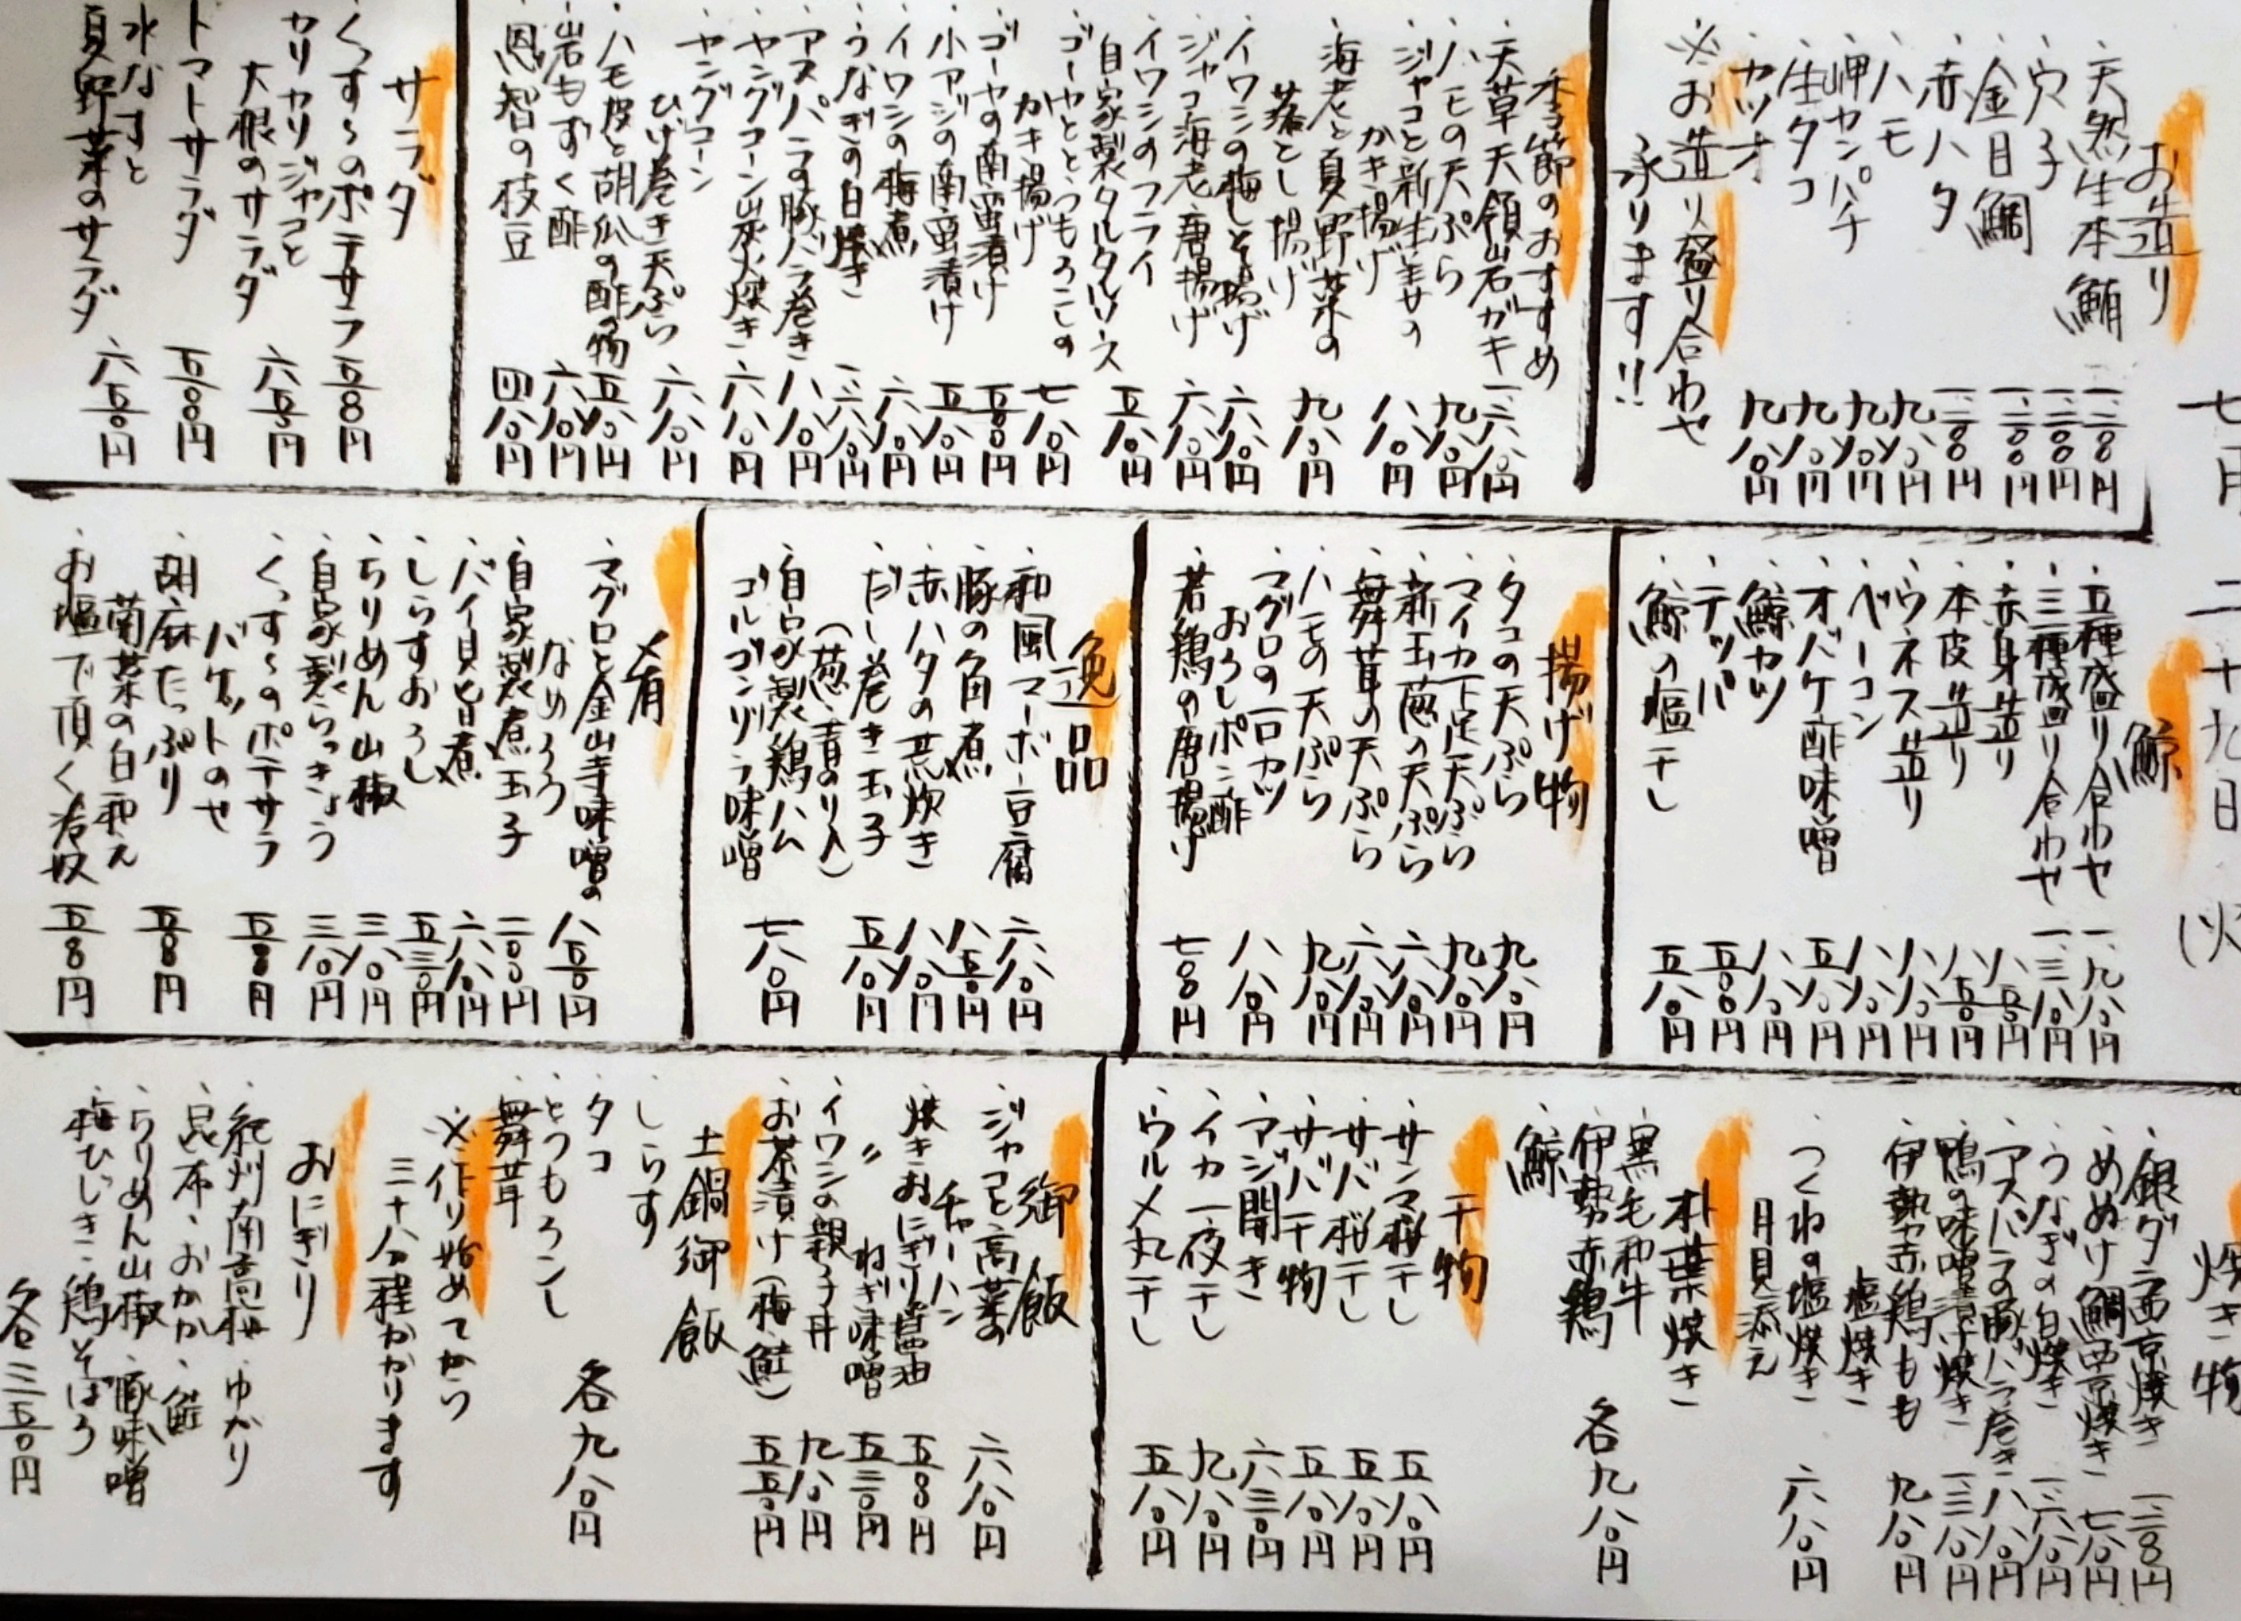 七月二十九日(火
お造り
・天然生本鮪 一、二八〇円
・穴子 一、二八〇円
・金目鯛 一、二八〇円
・赤ハタ 一、二八〇円
・ハモ 九八〇円
・岬カンパチ 九八〇円
・生タコ 九八〇円
・カツオ 九八〇円
※お造り盛り合わせ
承ります!!
季節のおすすめ
・天草天領岩ガキ 一、二八〇円
・ハモの天ぷら 九八〇円
・ジャコと新生姜の
かき揚げ 八八〇円
・海老と夏野菜の
落とし揚げ 九八〇円
・イワシの梅しそ揚げ 六八〇円
・ジャコ海老唐揚げ 六八〇円
・イワシのフライ
自家製タルタルソース 五八〇円
・ゴーヤととうもろこしの
かき揚げ 七八〇円
・ゴーヤの南蛮漬け 五八〇円
・小アジの南蛮漬け 五八〇円
・イワシの梅煮 六八〇円
・うなぎの白焼き 一、二八〇円
・アスパラの豚バラ巻き 八八〇円
・ヤングコーン炭火焼き 六八〇円
・ヤングコーン
ひげ巻き天ぷら 六八〇円
・ハモ皮と胡瓜の酢の物 五八〇円
・岩もずく酢 六八〇円
・恩智の枝豆 四八〇円
サラダ
・くっすーのポテサラ 五八〇円
・カリカリジャコと
大根のサラダ 六五〇円
・トマトサラダ 五八〇円
・水なすと
夏野菜のサラダ 六五〇円
鯨
・五種盛り合わせ 一、九八〇円
・三種盛り合わせ 一、三八〇円
・赤身造り 八五〇円
・本皮造り 八五〇円
・ウネス造り 八八〇円
・ベーコン 八八〇円
・オバケ酢味噌 五八〇円
・鯨カツ 八八〇円
・テッパ 五八〇円
・鯨の塩干し 五八〇円
揚げ物
・タコの天ぷら 九八〇円
・マイカ下足天ぷら 九八〇円
・新玉葱の天ぷら 六八〇円
・舞茸の天ぷら 六八〇円
・ハモの天ぷら 九八〇円
・マグロの一口カツ
おろしポン酢 八八〇円
・若鶏の唐揚げ 七八〇円
逸品
・和風マーボー豆腐 六八〇円
・豚の角煮 八五〇円
・赤ハタの荒炊き 八八〇円
・だし巻き玉子
(葱、青のり入) 五八〇円
・自家製鶏ハム
ゴルゴンゾーラ味噌 七八〇円
〆肴
・マグロと金山寺味噌の
なめろう 八五〇円
・自家製煮玉子 二〇〇円
・バイ貝旨煮 六八〇円
・しらすおろし 五三〇円
・ちりめん山椒 三八〇円
・自家製らっきょう 三八〇円
・くっすーのポテサラ
バケットのせ 五八〇円
・胡麻たっぷり
菊菜の白和え 五八〇円
・お塩で頂く冷奴 五八〇円
焼き物
・銀ダラ西京焼き 一、二八〇円
・めぬけ鯛西京焼き 七八〇円
・うなぎの白焼き 一、二八〇円
・アスパラの豚バラ巻き 八八〇円
・鴨の味噌漬け焼き 一、三八〇円
・伊勢赤鶏もも
塩焼き 九八〇円
・つくねの塩焼き
月見添え 六八〇円
朴葉焼き
・黒毛和牛
・伊勢赤鶏
・鯨
各九八〇円
干物
・サンマ桜干し 五八〇円
・サバ桜干し 五八〇円
・サバ干物 五八〇円
・アジ開き 六三〇円
・イカ一夜干し 九八〇円
・ウルメ丸干し 五八〇円
御飯
・ジャコと高菜の
チャーハン 六八〇円
・焼きおにぎり醤油 五八〇円
・〃 ねぎ味噌 五三〇円
・イワシの親子丼 九八〇円
・お茶漬け(梅、鮭) 五五〇円
土鍋御飯
・しらす
・タコ
・とうもろこし
・舞茸
各九八〇円
※作り始めてから
三十分程かかります
おにぎり
・紀州南高梅・ゆかり
・昆布・おかか・鮭
・ちりめん山椒・豚味噌
・梅ひじき・鶏そぼろ
各三五〇円